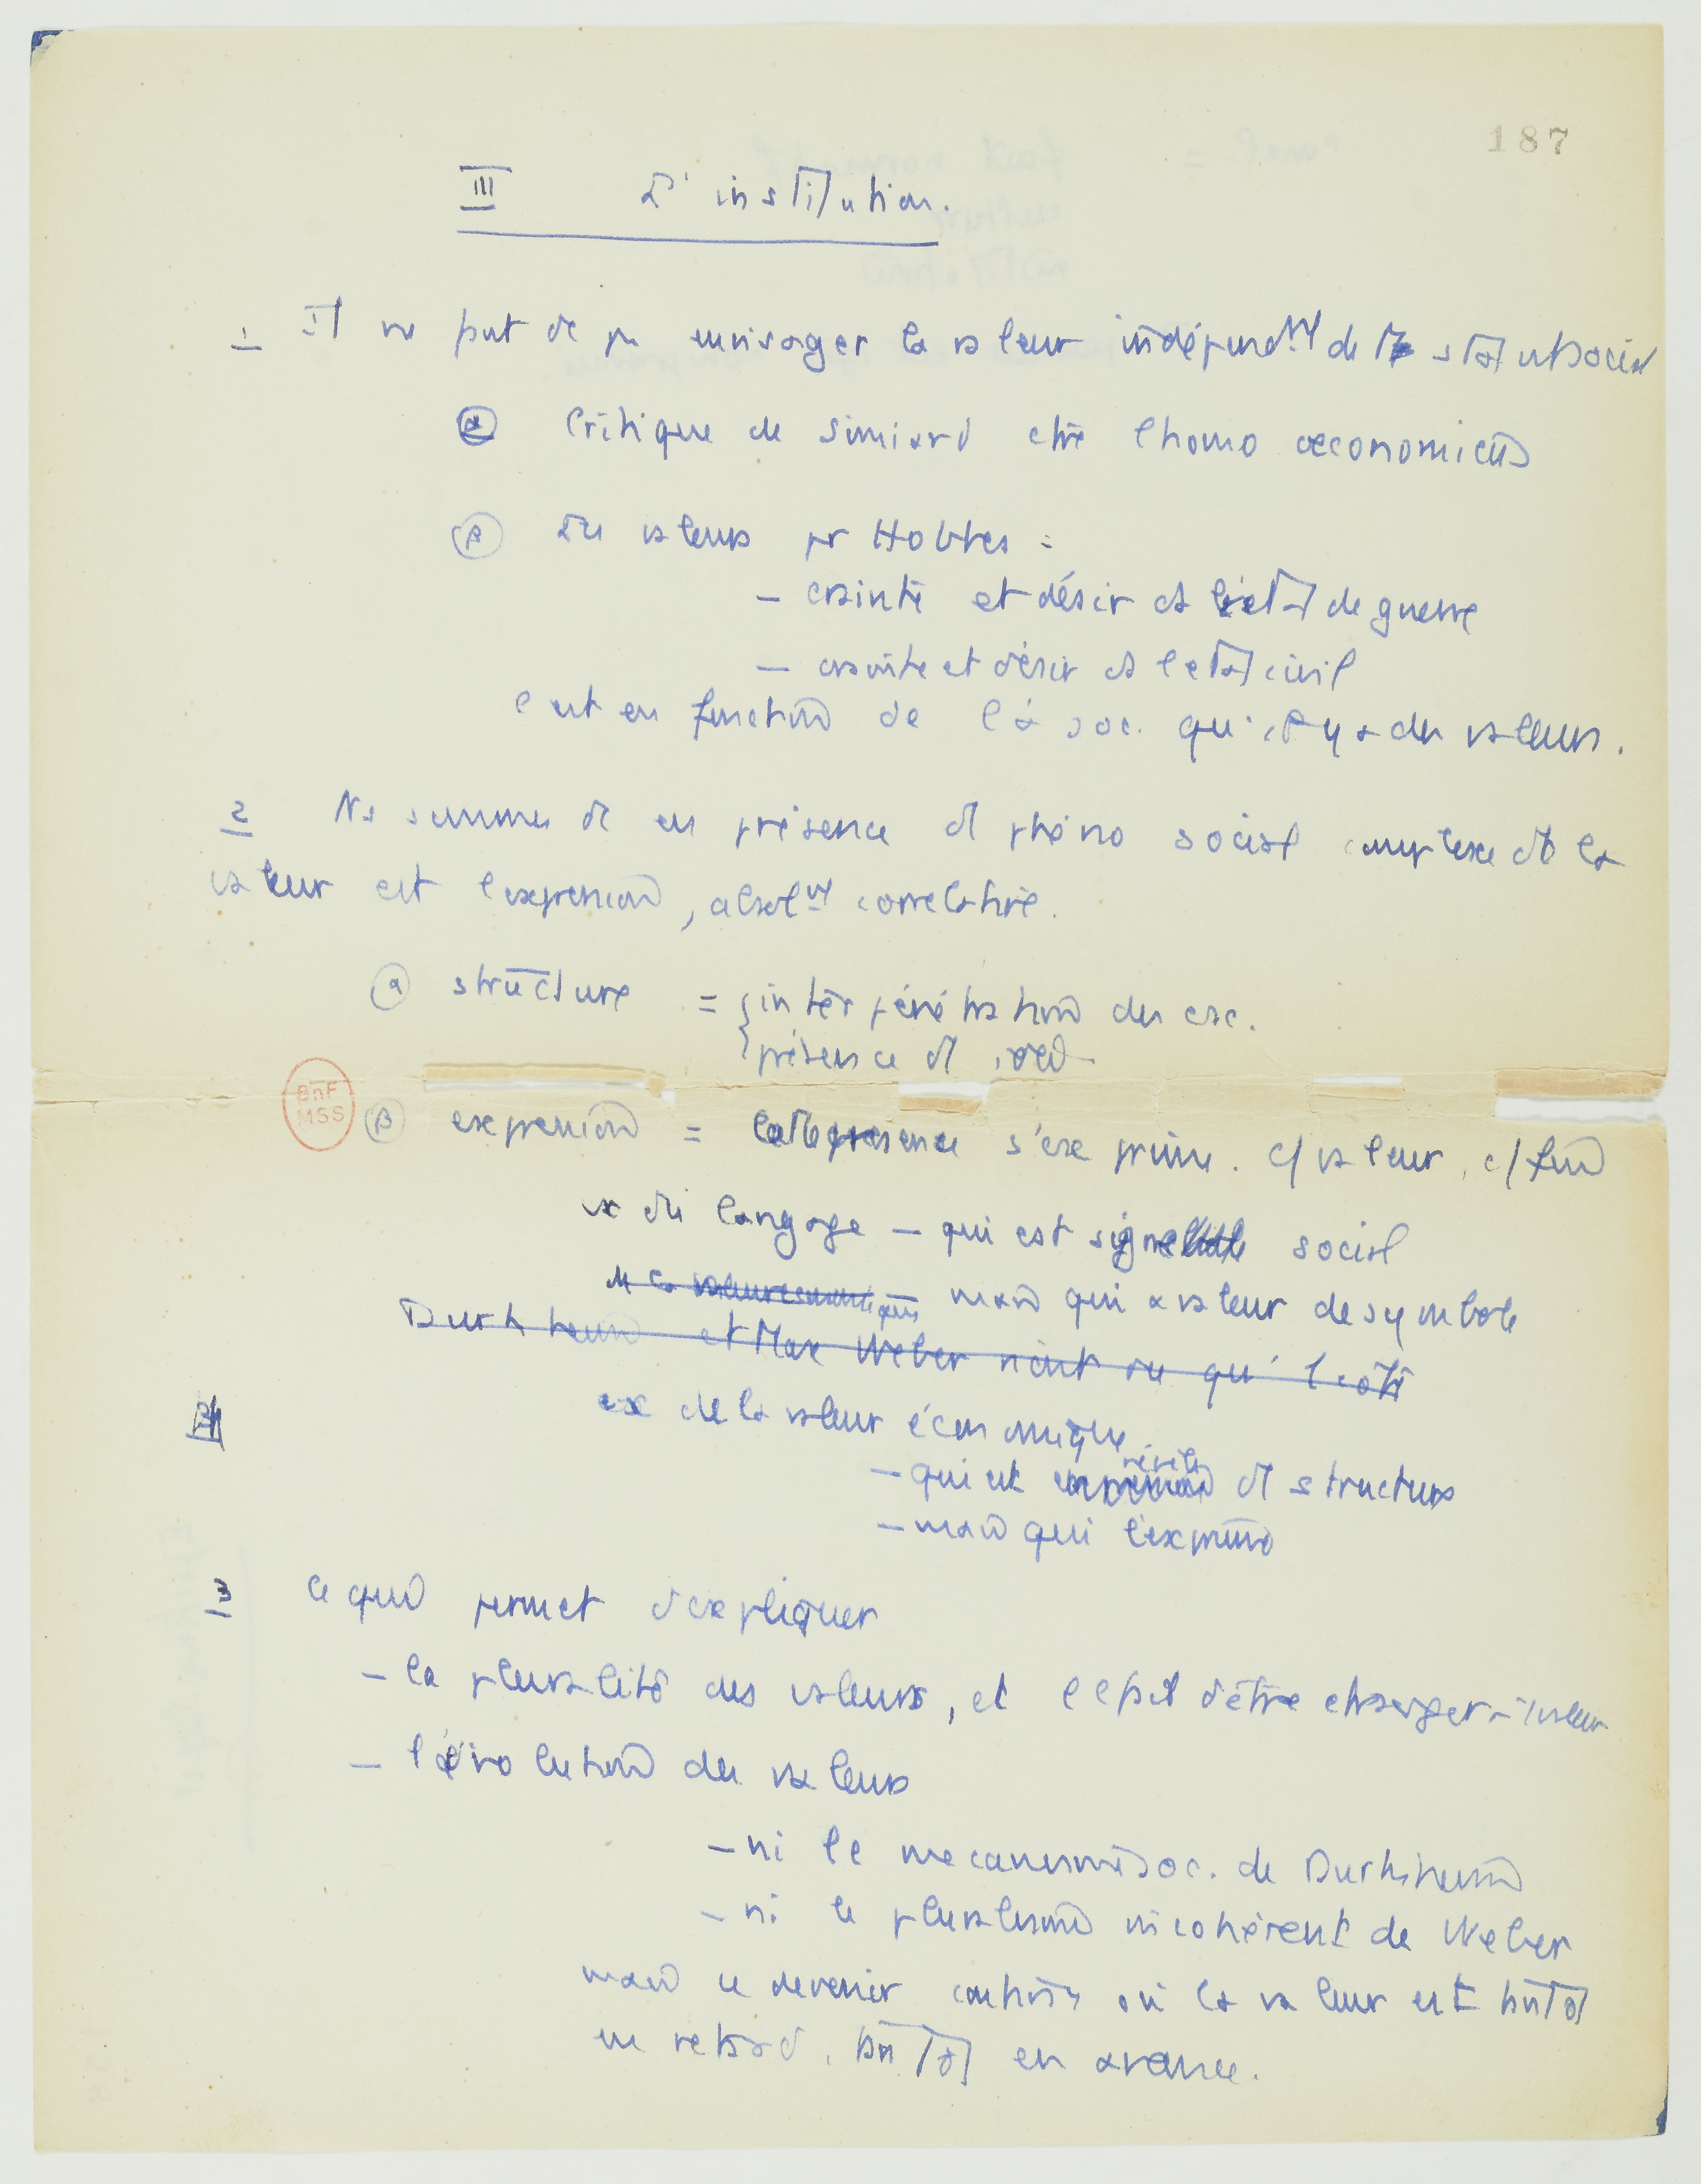 187
III L'institution.
1 Il ne peut dc pas envisager la valeur indépendt de l statut social
α Critique de Simiand ctre l'homo oeconomicus
β Les valeurs pr Hobbes :
– crainte et désir ds l'état de guerre
– crainte et désir ds l'état civil
C'est en fonction de la soc. qu'il y a des valeurs.
2 Ns sommes dc en présence d'1 phéno social complexe dt la
valeur est l'expression, absolt corrélative.
α structure = interpénétration des csc.
présence d'1
BnF
MSS
β expression = présence s'exprime. c/ valeur, c/ fin
ex du langage – qui est signe social
mais qui a valeur de symbole
Durkheim et Max Weber n'ont vu qu'1 côté
ex de la valeur économique
– qui est d'1 structure
– mais qui l'exprime
3 Ce qui permet d'expliquer
– la pluralité des valeurs, et le fait d'être
– l'évolution des valeurs
– ni le mécanisme soc. de Durkheim
– ni le pluralisme incohérent de Weber
mais ce devenir continu où la valeur est tantôt
en retard, tantôt en avance.